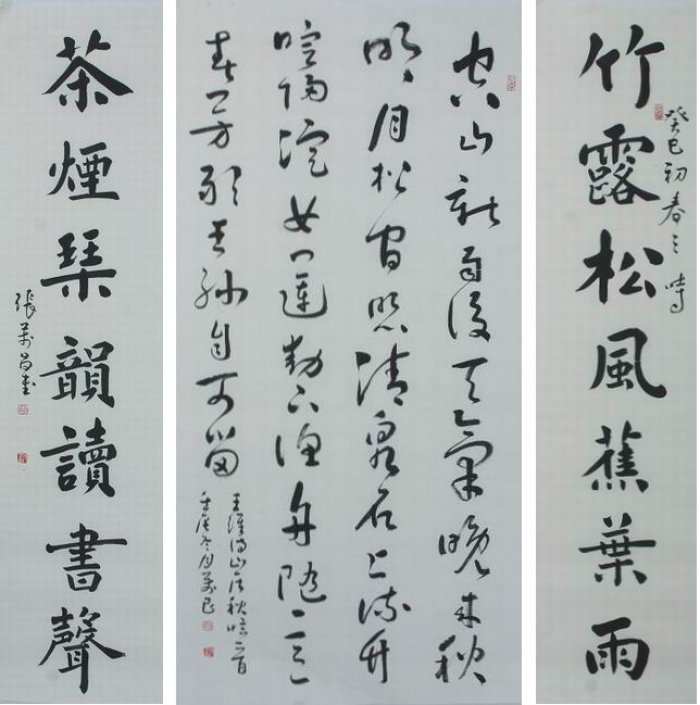 竹露松風蕉葉雨
癸巳初春之時
空山新雨後天氣晚來秋
明月松間照清泉石上流竹
喧歸浣女蓮動下漁舟隨意
春芳歇王孫自可留
王維詩山居秋暝一首
壬辰冬月萬昌
茶煙琴韻讀書聲
張萬昌書